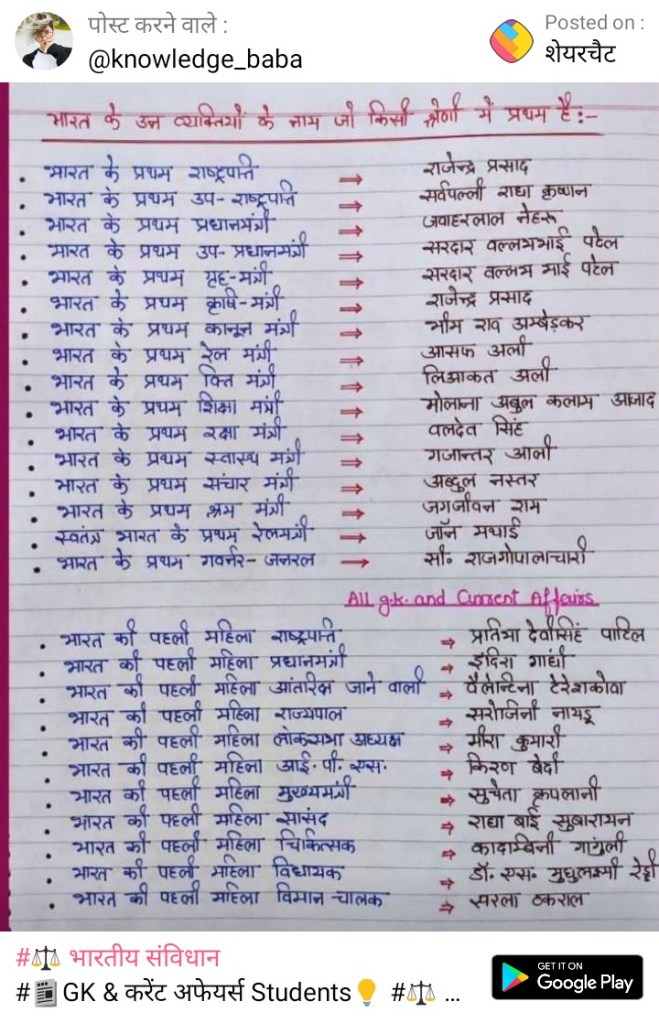 पोस्ट करने वाले :
@knowledge_baba
Posted on :
शेयरचैट
भारत के उन व्यक्तियों के नाम जो किसी श्रेणी में प्रथम है:-
• भारत के प्रथम राष्ट्रपति → राजेन्द्र प्रसाद
• भारत के प्रथम उप-राष्ट्रपति → सर्वपल्ली राधा कृष्णन
• भारत के प्रथम प्रधानमंत्री → जवाहरलाल नेहरू
• भारत के प्रथम उप-प्रधानमंत्री → सरदार वल्लभभाई पटेल
• भारत के प्रथम गृह-मंत्री → सरदार वल्लभ भाई पटेल
• भारत के प्रथम कृषि-मंत्री → राजेन्द्र प्रसाद
• भारत के प्रथम कानून मंत्री → भीम राव अम्बेड़कर
• भारत के प्रथम रेल मंत्री → आसफ अली
• भारत के प्रथम वित्त मंत्री → लिआकत अली
• भारत के प्रथम शिक्षा मंत्री → मोलाना अबुल कलाम आजाद
• भारत के प्रथम रक्षा मंत्री → वलदेव सिंह
• भारत के प्रथम स्वास्थ मंत्री → गजान्तर आली
• भारत के प्रथम संचार मंत्री → अब्दुल नस्तर
• भारत के प्रथम श्रम मंत्री → जगजीवन राम
• स्वतंत्र भारत के प्रथम रेलमंत्री → जॉन मथाई
• भारत के प्रथम गवर्नर-जनरल → सी॰ राजगोपालाचारी
All g.k. and Current Affairs
• भारत की पहली महिला राष्ट्रपति → प्रतिभा देवीसिंह पाटिल
• भारत की पहली महिला प्रधानमंत्री → इंदिरा गांधी
• भारत की पहली महिला आंतरिक्ष जाने वाली → वैलेन्टिना टेरेशकोवा
• भारत की पहली महिला राज्यपाल → सरोजिनी नायडू
• भारत की पहली महिला लोकसभा अध्यक्ष → मीरा कुमारी
• भारत की पहली महिला आई.पी.एस. → किरण बेदी
• भारत की पहली महिला मुख्यमंत्री → सुचेता कृपलानी
• भारत की पहली महिला सासंद → राधा बाई सुबारायन
• भारत की पहली महिला चिकित्सक → कादाम्बिनी गांगुली
• भारत की पहली महिला विधायक → डॉ. एस. मुधुलक्ष्मी रेड्डी
• भारत की पहली महिला विमान-चालक → सरला ठकराल
#⚖️ भारतीय संविधान
#📰GK & करेंट अफेयर्स Students💡 #⚖️ ...
GET IT ON
Google Play